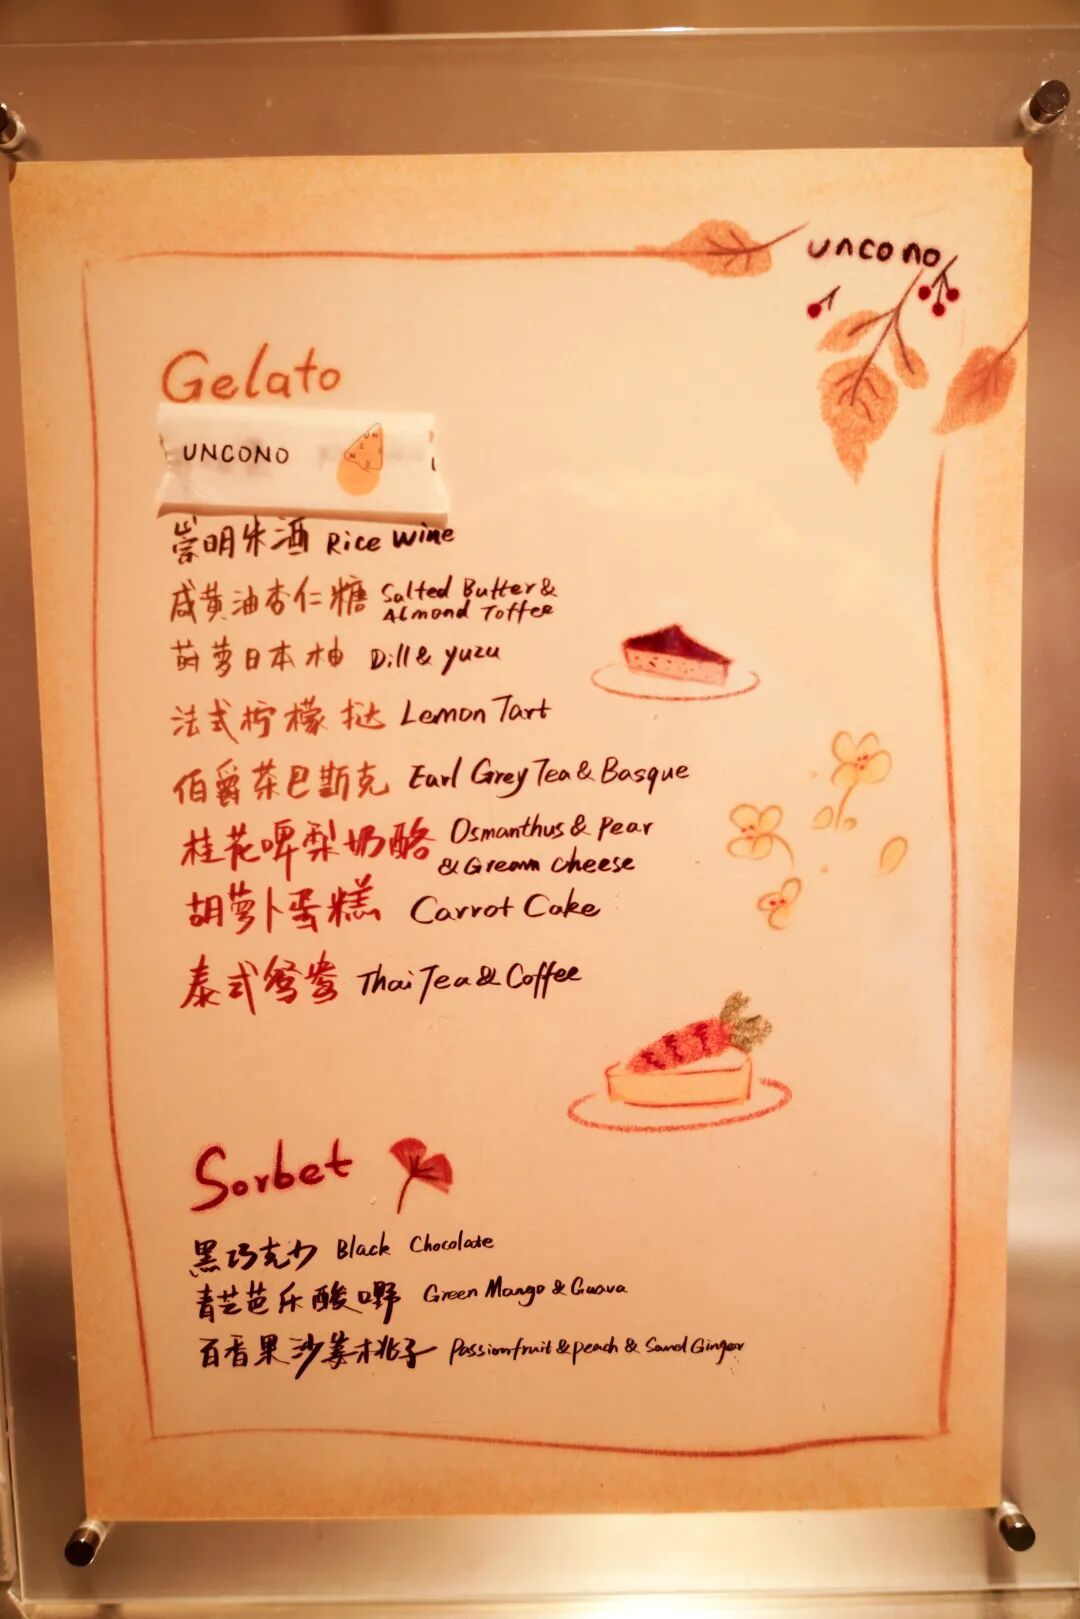 uncono
Gelato
UNCONO
崇明米酒 Rice Wine
咸黄油杏仁糖 Salted Butter &
Almond Toffee
莳萝日本柚 Dill & yuzu
法式柠檬挞 Lemon Tart
伯爵茶巴斯克 Earl Grey Tea & Basque
桂花啤梨奶酪 Osmanthus & Pear
& Cream Cheese
胡萝卜蛋糕 Carrot Cake
泰式鸳鸯 Thai Tea & Coffee
Sorbet
黑巧克力 Black Chocolate
青芒芭乐酸嘢 Green Mango & Guava
百香果沙姜桃子 Passionfruit & peach & Sand Ginger